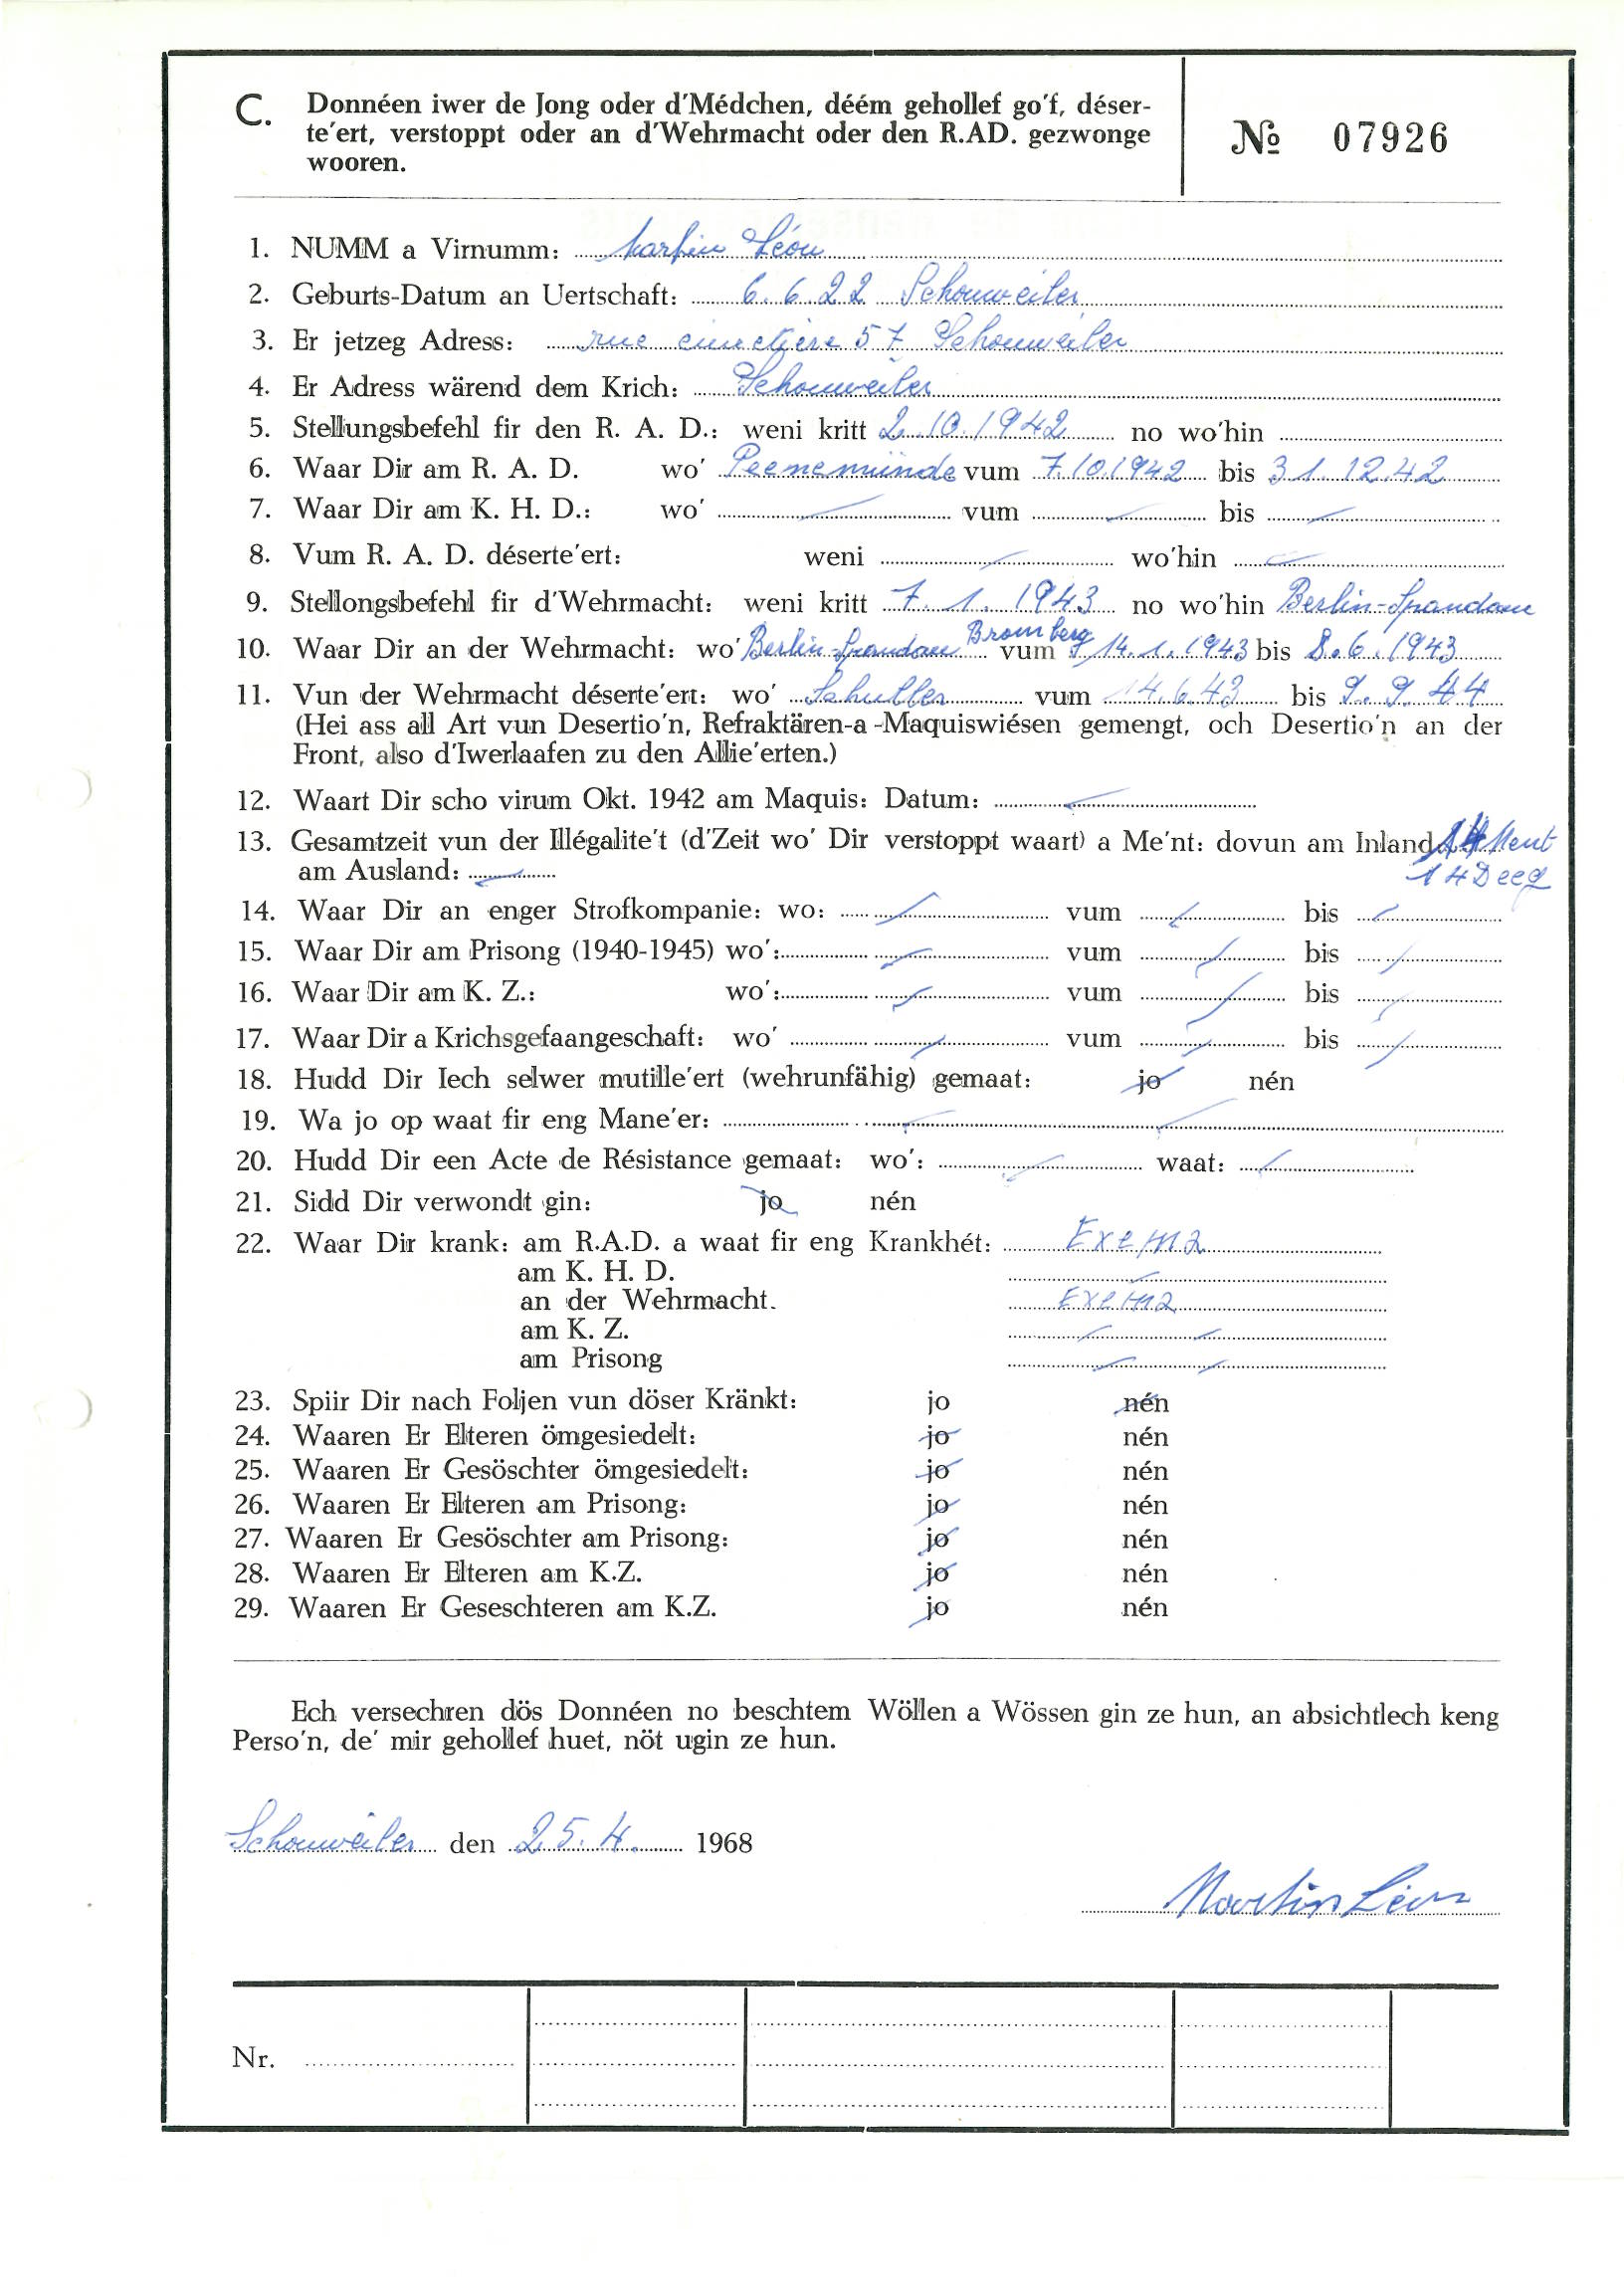 C. Donnéen iwer de Jong oder d'Médchen, déém gehollef go'f, déser-
te'ert, verstoppt oder an d'Wehrmacht oder den R.AD. gezwonge
wooren.
№ 07926
1. NUMM a Virnumm: Martin Léon
2. Geburts-Datum an Uertschaft: 6.6.22 Schouweiler
3. Er jetzeg Adress: rue cimetière 57 Schouweiler
4. Er Adress wärend dem Krich: Schouweiler
5. Stellungsbefehl fir den R. A. D.: weni kritt 2.10.1942 no wo'hin
6. Waar Dir am R. A. D. wo' Peenemünde vum 7.10.1942 bis 31.12.42
7. Waar Dir am K. H. D.: wo' vum bis
8. Vum R. A. D. déserte'ert: weni wo'hin
9. Stellongsbefehl fir d'Wehrmacht: weni kritt 7.1.1943 no wo'hin Berlin-Spandau
10. Waar Dir an der Wehrmacht: wo' Berlin-Spandau Bromberg vum 14.1.1943 bis 8.6.1943
11. Vun der Wehrmacht déserte'ert: wo' vum 14.6.43 bis 9.9.44
(Hei ass all Art vun Desertio'n, Refraktären-a-Maquiswiésen gemengt, och Desertio'n an der
Front, also d'Iwerlaafen zu den Allie'erten.)
12. Waart Dir scho virum Okt. 1942 am Maquis: Datum:
13. Gesamtzeit vun der Illégalite't (d'Zeit wo' Dir verstoppt waart) a Me'nt: dovun am Inland 14 Ment
am Ausland: 14 Deeg
14. Waar Dir an enger Strofkompanie: wo: vum bis
15. Waar Dir am Prisong (1940-1945) wo': vum bis
16. Waar Dir am K. Z.: wo': vum bis
17. Waar Dir a Krichsgefaangeschaft: wo' vum bis
18. Hudd Dir Iech selwer mutille'ert (wehrunfähig) gemaat: jo nén
19. Wa jo op waat fir eng Mane'er:
20. Hudd Dir een Acte de Résistance gemaat: wo': waat:
21. Sidd Dir verwondt gin: jo nén
22. Waar Dir krank: am R.A.D. a waat fir eng Krankhét: Exema
am K. H. D.
an der Wehrmacht. Exema
am K. Z.
am Prisong
23. Spiir Dir nach Foljen vun döser Kränkt: jo nén
24. Waaren Er Elteren ömgesiedelt: jo nén
25. Waaren Er Gesöschter ömgesiedelt: jo nén
26. Waaren Er Elteren am Prisong: jo nén
27. Waaren Er Gesöschter am Prisong: jo nén
28. Waaren Er Elteren am K.Z. jo nén
29. Waaren Er Geseschteren am K.Z. jo nén
Ech versechren dös Donnéen no beschtem Wöllen a Wössen gin ze hun, an absichtlech keng
Perso'n, de' mir gehollef huet, nöt ugin ze hun.
Schouweiler den 25.4. 1968
Martin Léon
Nr.